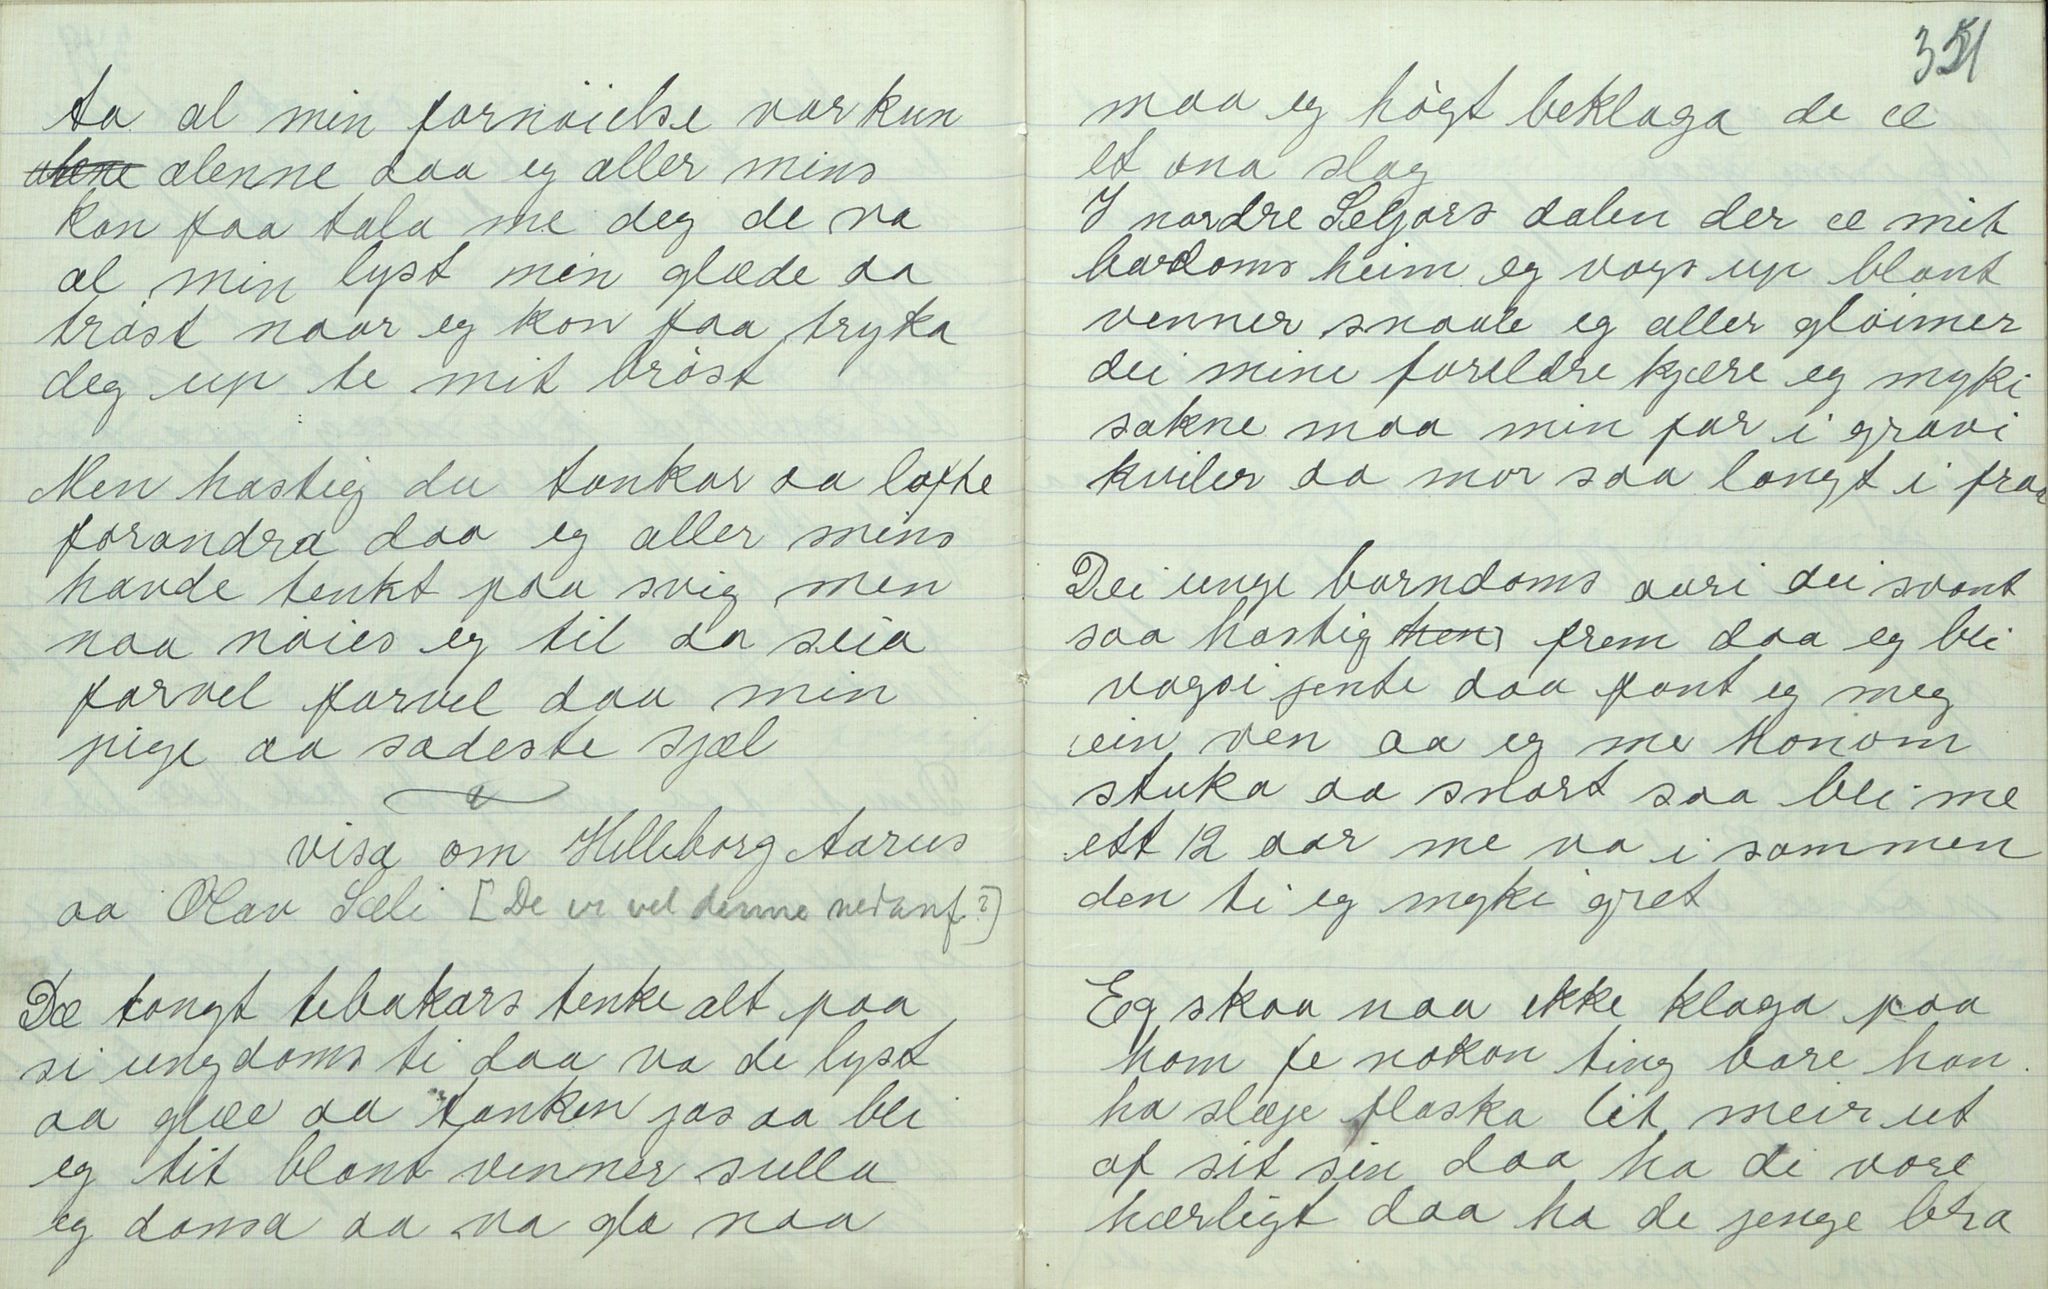 ta al min fornøielse var kun
alene ælenne daa eg aller mins
kan faa tala me deg de va
al min lyst min glæde aa
trøst naar eg kan faa tryka
deg up te mit brøst
Men hastig du tankar aa løfte
forandra daa eg aller mins
havde tenkt paa svig men
naa nøies eg til aa seia
farvel farvel daa min
pige aa sødeste sjæl
visa om Hælleborg Aarus
aa Olav Sæli [De er vel denne nedanf.?]
Dæ tongt tebakars tenke alt paa
si ungdoms ti daa va de lyst
aa glæe aa tanken jos aa bli
eg tit blant venner sulla
eg dansa aa va gla naa
351
maa eg høgt beklaga de æ
et ana slag
I nordre Seljors dalen der æ mit
bardoms heim eg vogs up blant
venner snaale eg aller gløimer
dei mine foreldre kjære eg myki
sakne maa min far i gravi
kviler aa mor saa langt i fraa
Dei unge barndoms aari dei svant
saa hastig hens frem daa eg bli
vagsi jente daa fant eg meg
ein ven aa eg me Honom
stuka aa snart saa bli me
ett 12 aar me va i sammen
den ti eg myki gret
Eg skaa naa ikke klaga paa
hom fe nokon ting bare han
ha slæje flaska lit meir ut
af sit sin daa ha di vore
hærligt daa ha de jenge bra